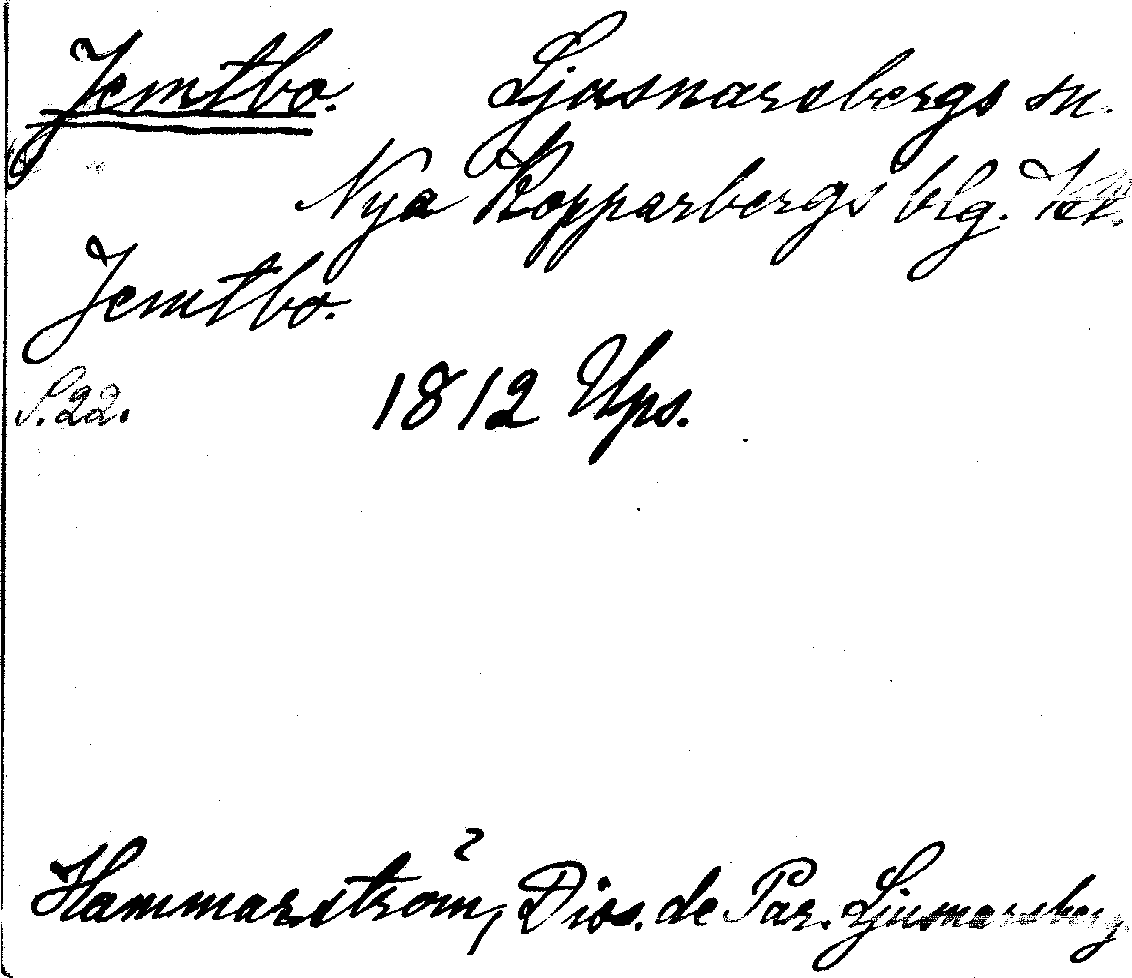 Jemtbo. Ljusnarsbergs sn.
Nya Kopparbergs blg.
Jemtbo.
S. 22. 1812 Ups.
Hammarström, Diss. de Par. Ljusnarsberg.